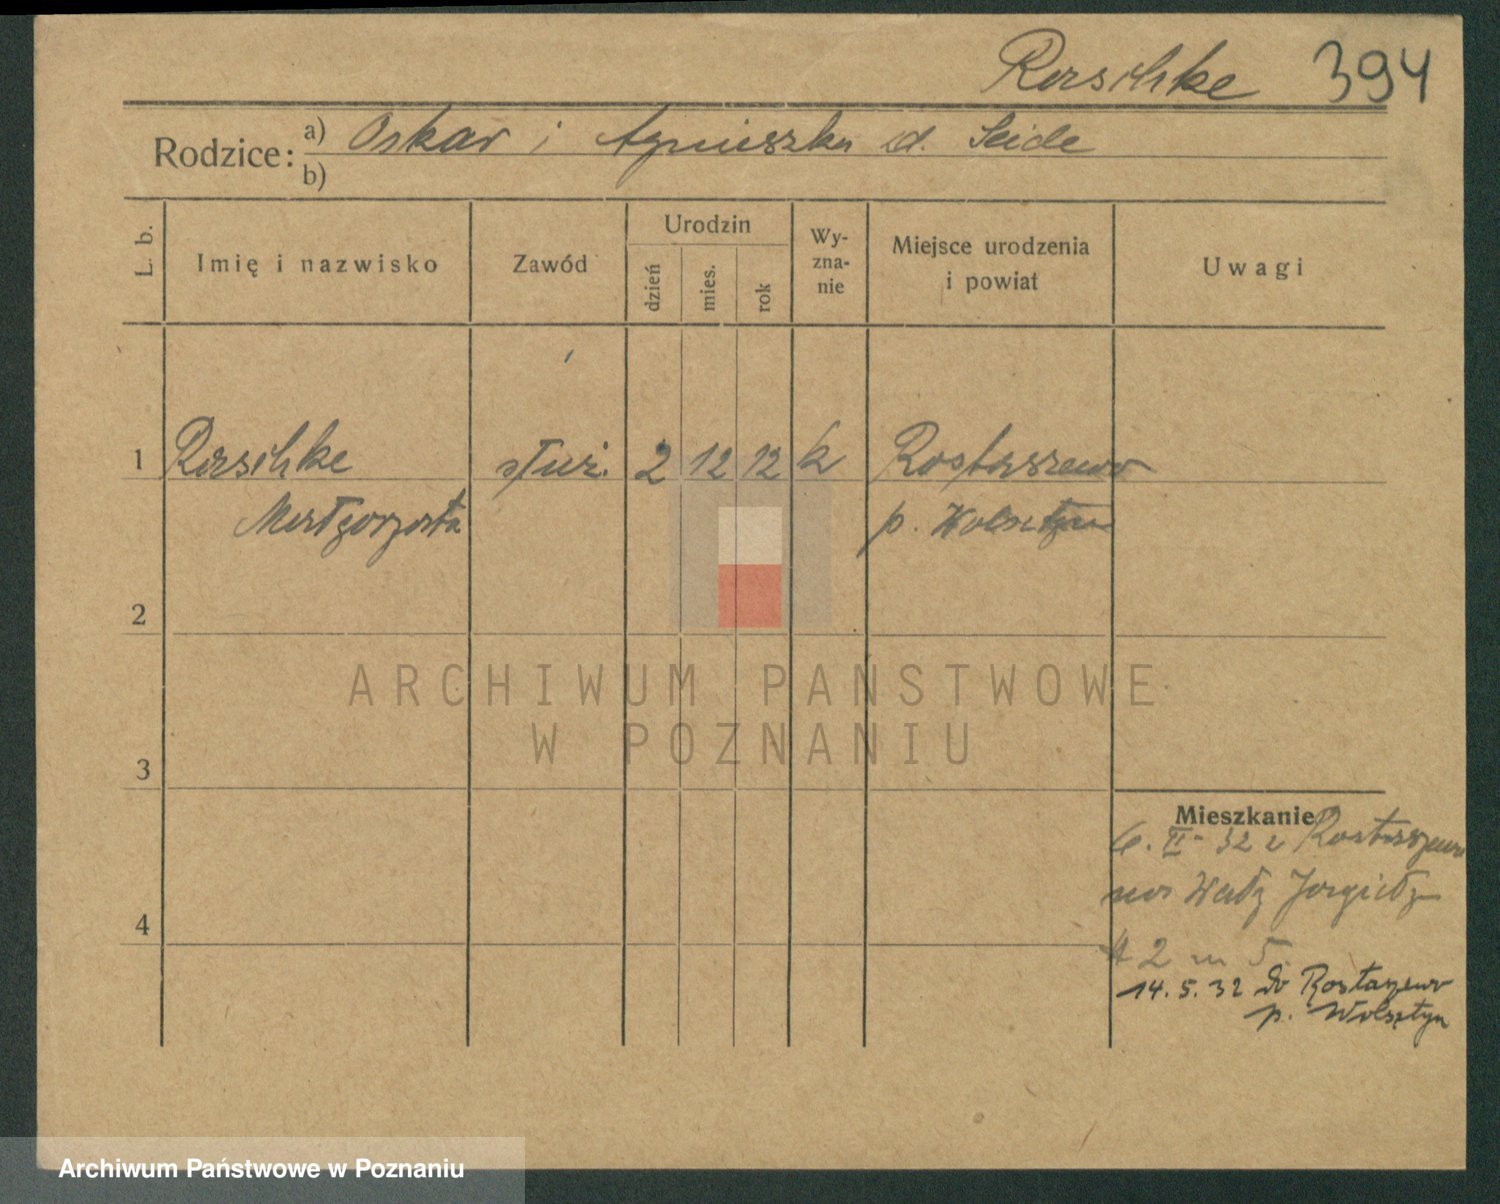 Rerschke 394
Rodzice: a) Oskar i Agnieszka d. Seide
b)
L. b. Imię i nazwisko Zawód Urodzin dzień mies. rok Wy-zna-nie Miejsce urodzenia i powiat Uwagi
1 Rerschke służ. 2 12 12 k Rostarzewo
Małgorzata p. Wolsztyn
2
3
4
Mieszkanie
6. II - 32 z Rostarzewa
na Wały
2 m 5.
14. 5. 32 do Rostarzewo
p. Wolsztyn
ARCHIWUM PAŃSTWOWE
W POZNANIU
Archiwum Państwowe w Poznaniu